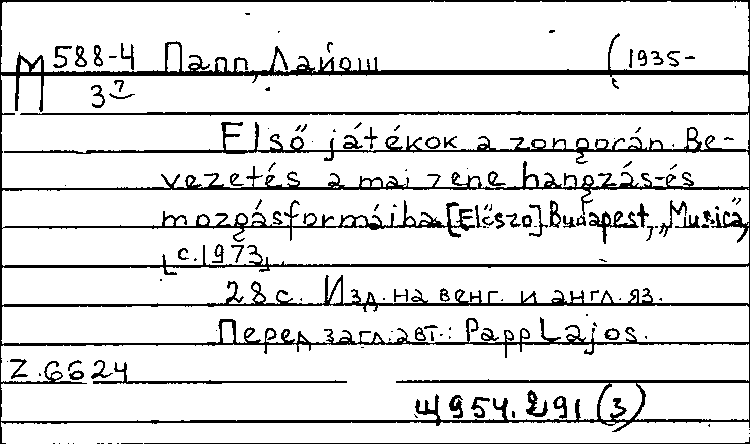 М 588-4 Папп, Лайош (1935-
3 7
Első játékok a zongorán. Be-
vezetés a mai zene hangzás-és
mozgásformáiba. [Előszo]. Budapest, „Musica",
[c. 1973].
28 с. Изд. на венг. и англ. яз.
Перед загл. авт.: Papp Lajos.
Z.6624
Щ954.291 (3)